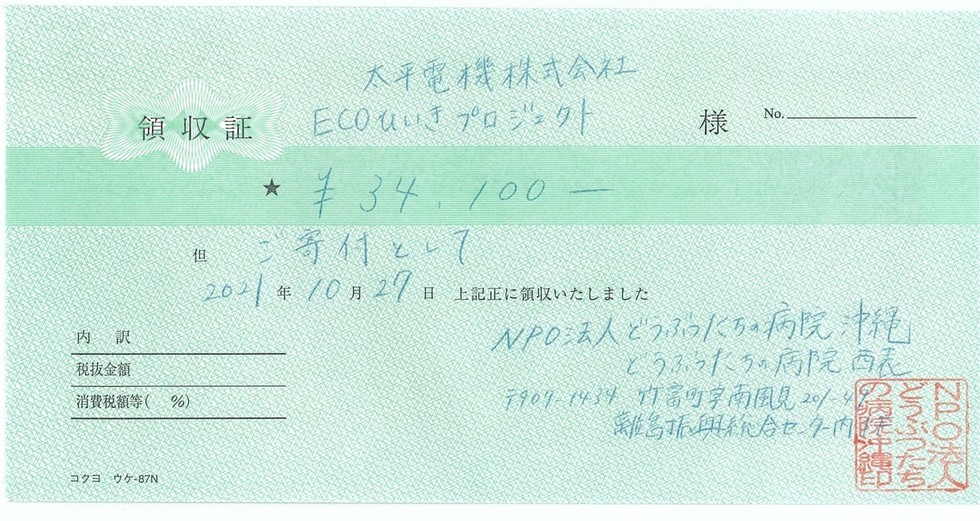 太平電機株式会社
ECOひいきプロジェクト 様 No.
領収証
★ ¥34,100―
但 ご寄付として
2021年10月27日 上記正に領収いたしました
内 訳
税抜金額
消費税額等( %)
NPO法人どうぶつたちの病院 沖縄
どうぶつたちの病院 西表
〒907-1434 竹富町字南風見201-49
離島振興総合センター内
NPO法人
どうぶつたち
の病院沖縄印
コクヨ ウケ-87N